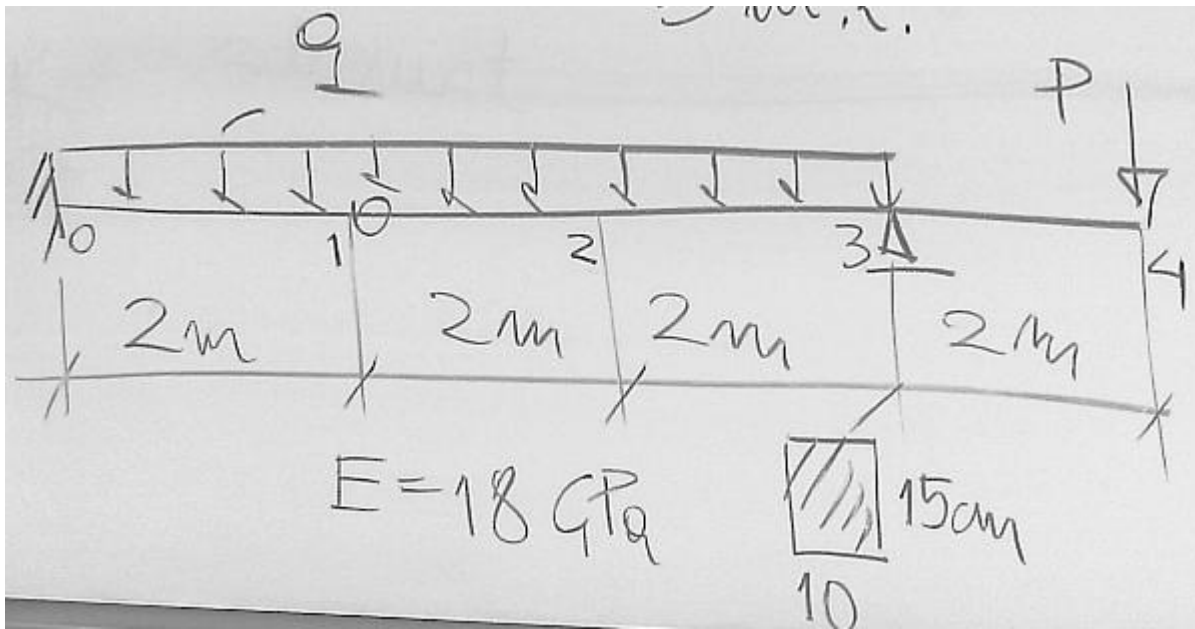 q
P
0 1 2 3 4
2m 2m 2m 2m
E=18 GPa
15cm
10